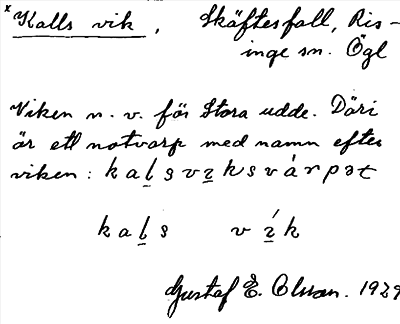 x Kalls vik, Skäftesfall, Ris-
inge sn. Ögl
Viken n. v. för Stora udde. Däri
är ett notvarp med namn efter
viken: kal̲svı̲ksvárpət
kal̲s vı̲́k
Gustaf E. Olsson. 1929